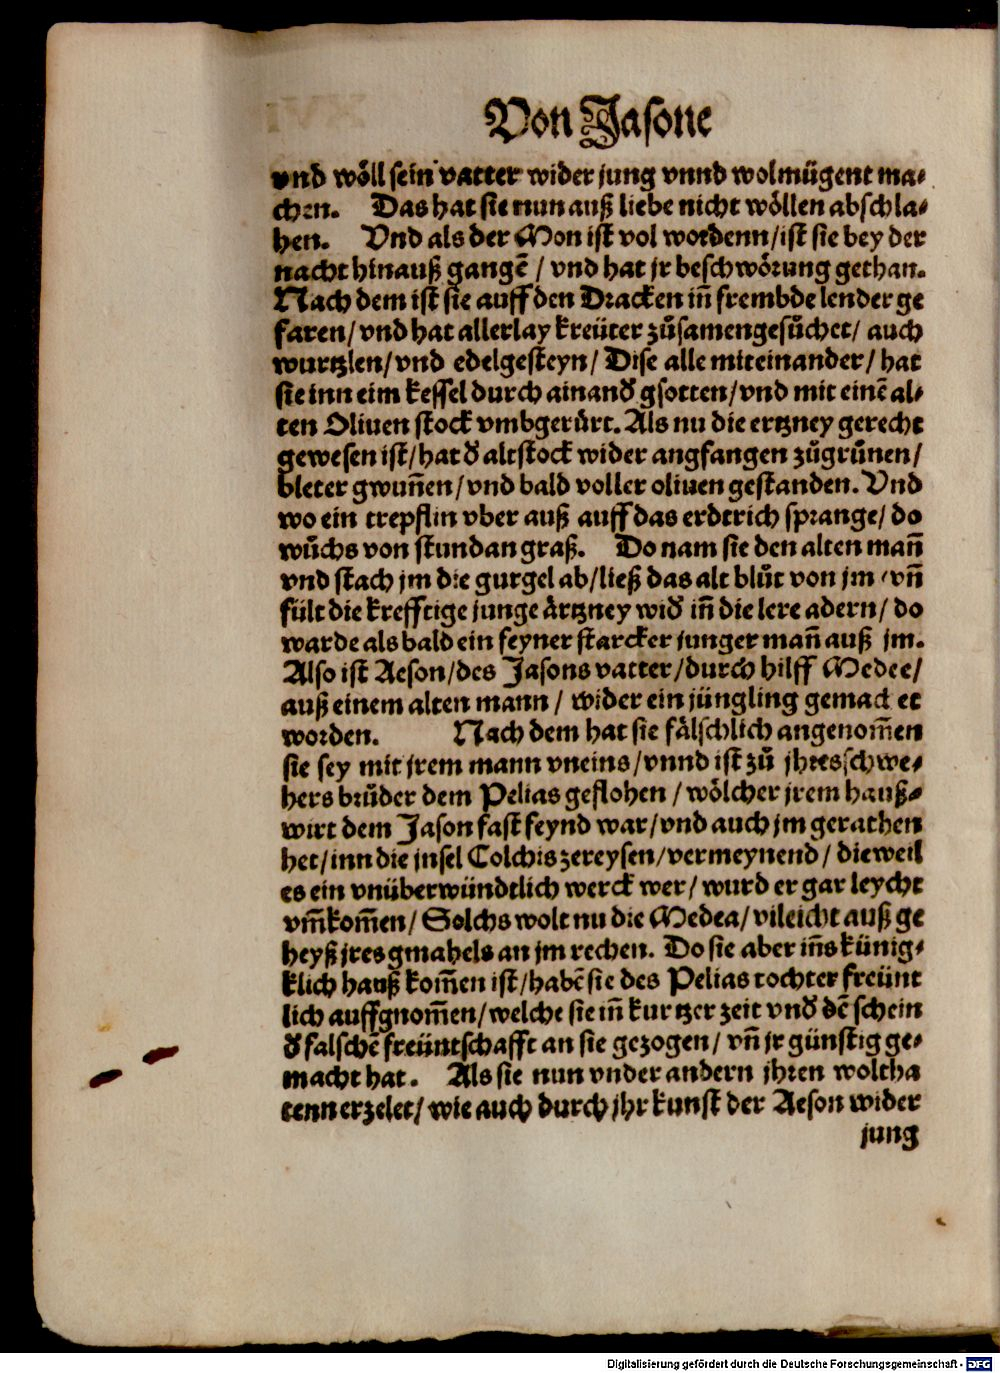 Von Jasone
vnd wöll sein vatter wider jung vnnd wolmügent ma⸗
chen. Das hat sie nun auß liebe nicht wöllen abschla⸗
hen. Vnd als der Mon ist vol wordenn/ist sie bey der
nacht hinauß gangē / vnd hat jr beschwörung gethan.
Nach dem ist sie auff den Dracken in̄ frembde lender ge
faren/vnd hat allerlay kreüter zůsamengesůchet/ auch
wurtzlen/vnd edelgesteyn/ Dise alle miteinander/ hat
sie inn eim kessel durch ainand̛ gsotten/vnd mit einē al⸗
ten Oliuen stock vmbgerůrt. Als nu die ertzney gerecht
gewesen ist/hat d̛ altstock wider angfangen zůgrůnen/
bleter gwun̄en/vnd bald voller oliuen gestanden. Vnd
wo ein trepflin vber auß auff das erdtrich sprange/ do
wůchs von stundan graß. Do nam sie den alten man̄
vnd stach jm die gurgel ab/ließ das alt blůt von jm /vn̄
fült die krefftige junge ärtzney wid̛ in̄ die lere adern/ do
warde als bald ein feyner starcker junger man̄ auß jm.
Also ist Aeson/des Jasons vatter/durch hilff Medee/
auß einem alten mann / wider ein jüngling gemachet
worden. Nach dem hat sie fälschlich angenom̄en
sie sey mit jrem mann vneins/vnnd ist zů jhres schwe⸗
hers brůder dem Pelias geflohen /wölcher jrem hauß⸗
wirt dem Jason fast feynd war/vnd auch jm gerathen
het/inn die jnsel Colchis zereysen/vermeynend/ dieweil
es ein vnüberwündtlich werck wer/ wurd er gar leycht
vm̄kom̄en/ Solchs wolt nu die Medea/vileicht auß ge
heyß jres gmahels an jm rechen. Do sie aber in̄s künig⸗
klich hauß kom̄en ist/habē sie des Pelias tochter freünt
lich auffgnom̄en/welche sie in̄ kurtzer zeit vnd̛ dē schein
d̛ falschē freüntschafft an sie gezogen/ vn̄ jr günstig ge⸗
macht hat. Als sie nun vnder andern jhren woltha
tenn erzelet/ wie auch durch jhr kunst der Aeson wider
jung
Digitalisierung gefördert durch die Deutsche Forschungsgemeinschaft - DFG